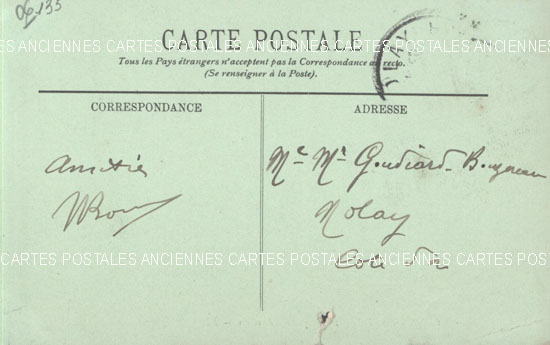 06.133
CARTE POSTALE
Tous les Pays étrangers n'acceptent pas la Correspondance au recto.
(Se renseigner à la Poste).
CARTES POSTALES ANCIENNES CARTES POSTALES ANCIENNES CARTES POSTALES
CORRESPONDANCE
ADRESSE
Amitiés
Me Mr Goudiard-Bouzereau
Nolay
Cote d'Or
CARTES POSTALES ANCIENNES CARTES POSTALES ANCIENNES CARTES POSTALES